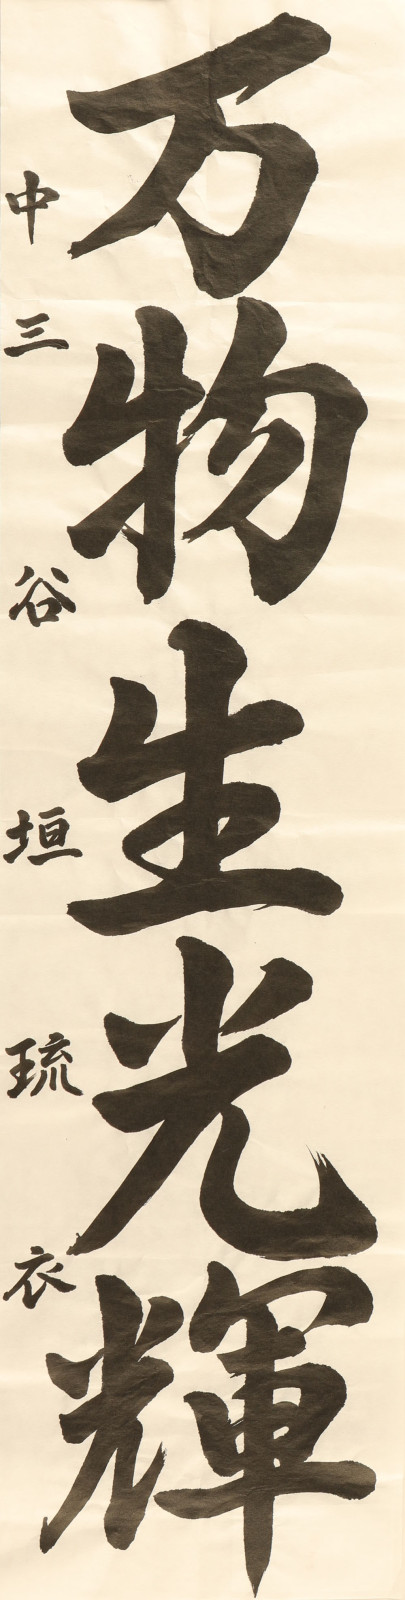 万物生光輝
中三 谷垣琉衣